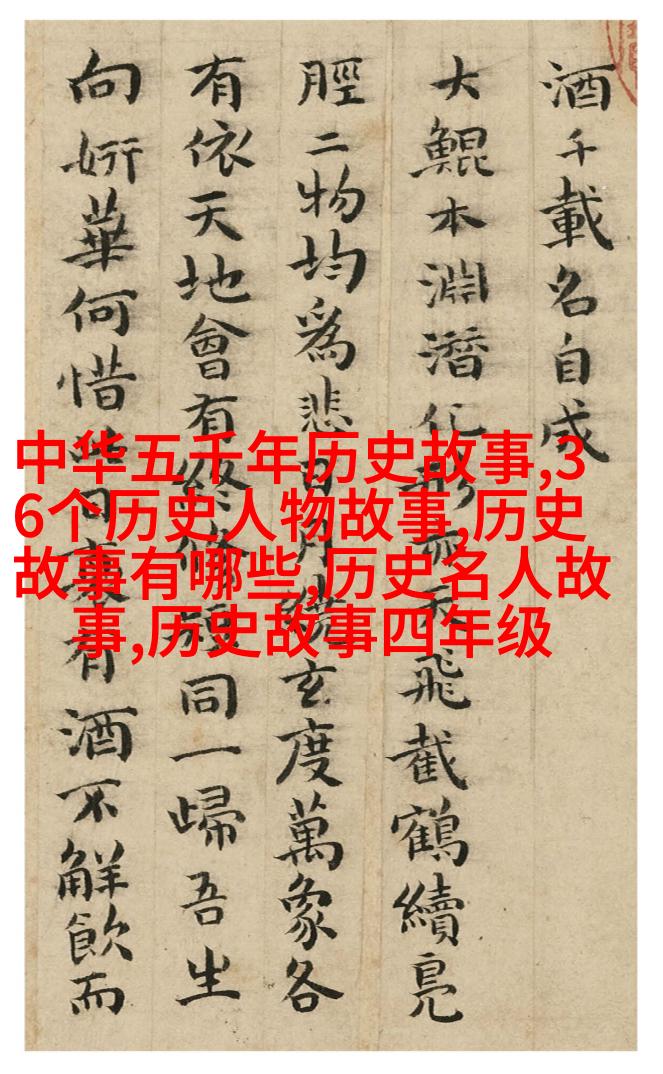 酒千載名自成
大鯤本淵潛化形而飛截鶴續鳧
脛二物均爲悲日月玄度萬象各
有依天地會有終脩短同一歸吾生
向妍華何惜此有酒不觧飲而
中华五千年历史故事,3
6个历史人物故事,历史
故事有哪些,历史名人故
事,历史故事四年级